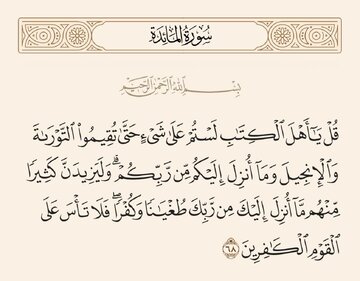 سُورَةُ المَائِدَةِ
بِسْمِ ٱللَّهِ ٱلرَّحْمَٰنِ ٱلرَّحِيمِ
قُلْ يَـٰٓأَهْلَ ٱلْكِتَـٰبِ لَسْتُمْ عَلَىٰ شَىْءٍ حَتَّىٰ تُقِيمُوا۟ ٱلتَّوْرَىٰةَ
وَٱلْإِنجِيلَ وَمَآ أُنزِلَ إِلَيْكُم مِّن رَّبِّكُمْ ۗ وَلَيَزِيدَنَّ كَثِيرًا
مِّنْهُم مَّآ أُنزِلَ إِلَيْكَ مِن رَّبِّكَ طُغْيَـٰنًا وَكُفْرًا ۖ فَلَا تَأْسَ عَلَى
ٱلْقَوْمِ ٱلْكَـٰفِرِينَ ٦٨